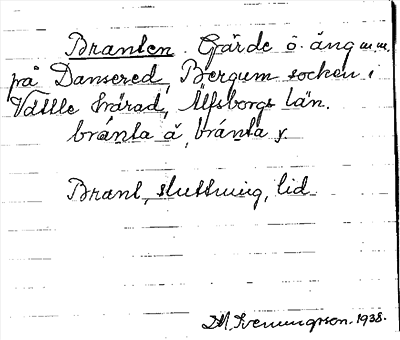 Branten. Gärde o. äng m.m.
på Dansered, Bergum socken i
Vättle härad, Älfsborgs län.
bránta å, bránta
Brant, sluttning, lid
1938.